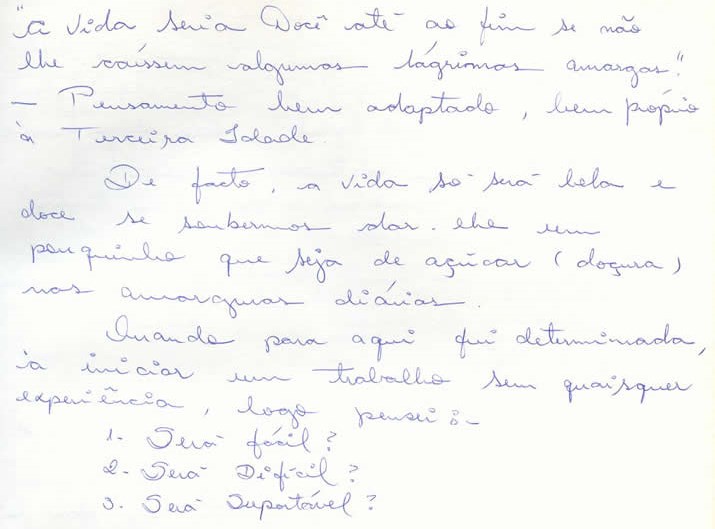 "A Vida seria Docê até ao fim se não
lhe caíssem algumas lágrimas amargas."
— Pensamento bem adaptado, bem próprio
à Terceira Idade.
De facto, a vida só será bela e
doce se soubermos dar-lhe um
pouquinho que seja de açúcar (doçura)
nas amarguras diárias.
Quando para aqui fui determinada,
a iniciar um trabalho sem quaisquer
experiência, logo pensei:-
1- Será fácil?
2- Será Difícil?
3. Será Suportável?